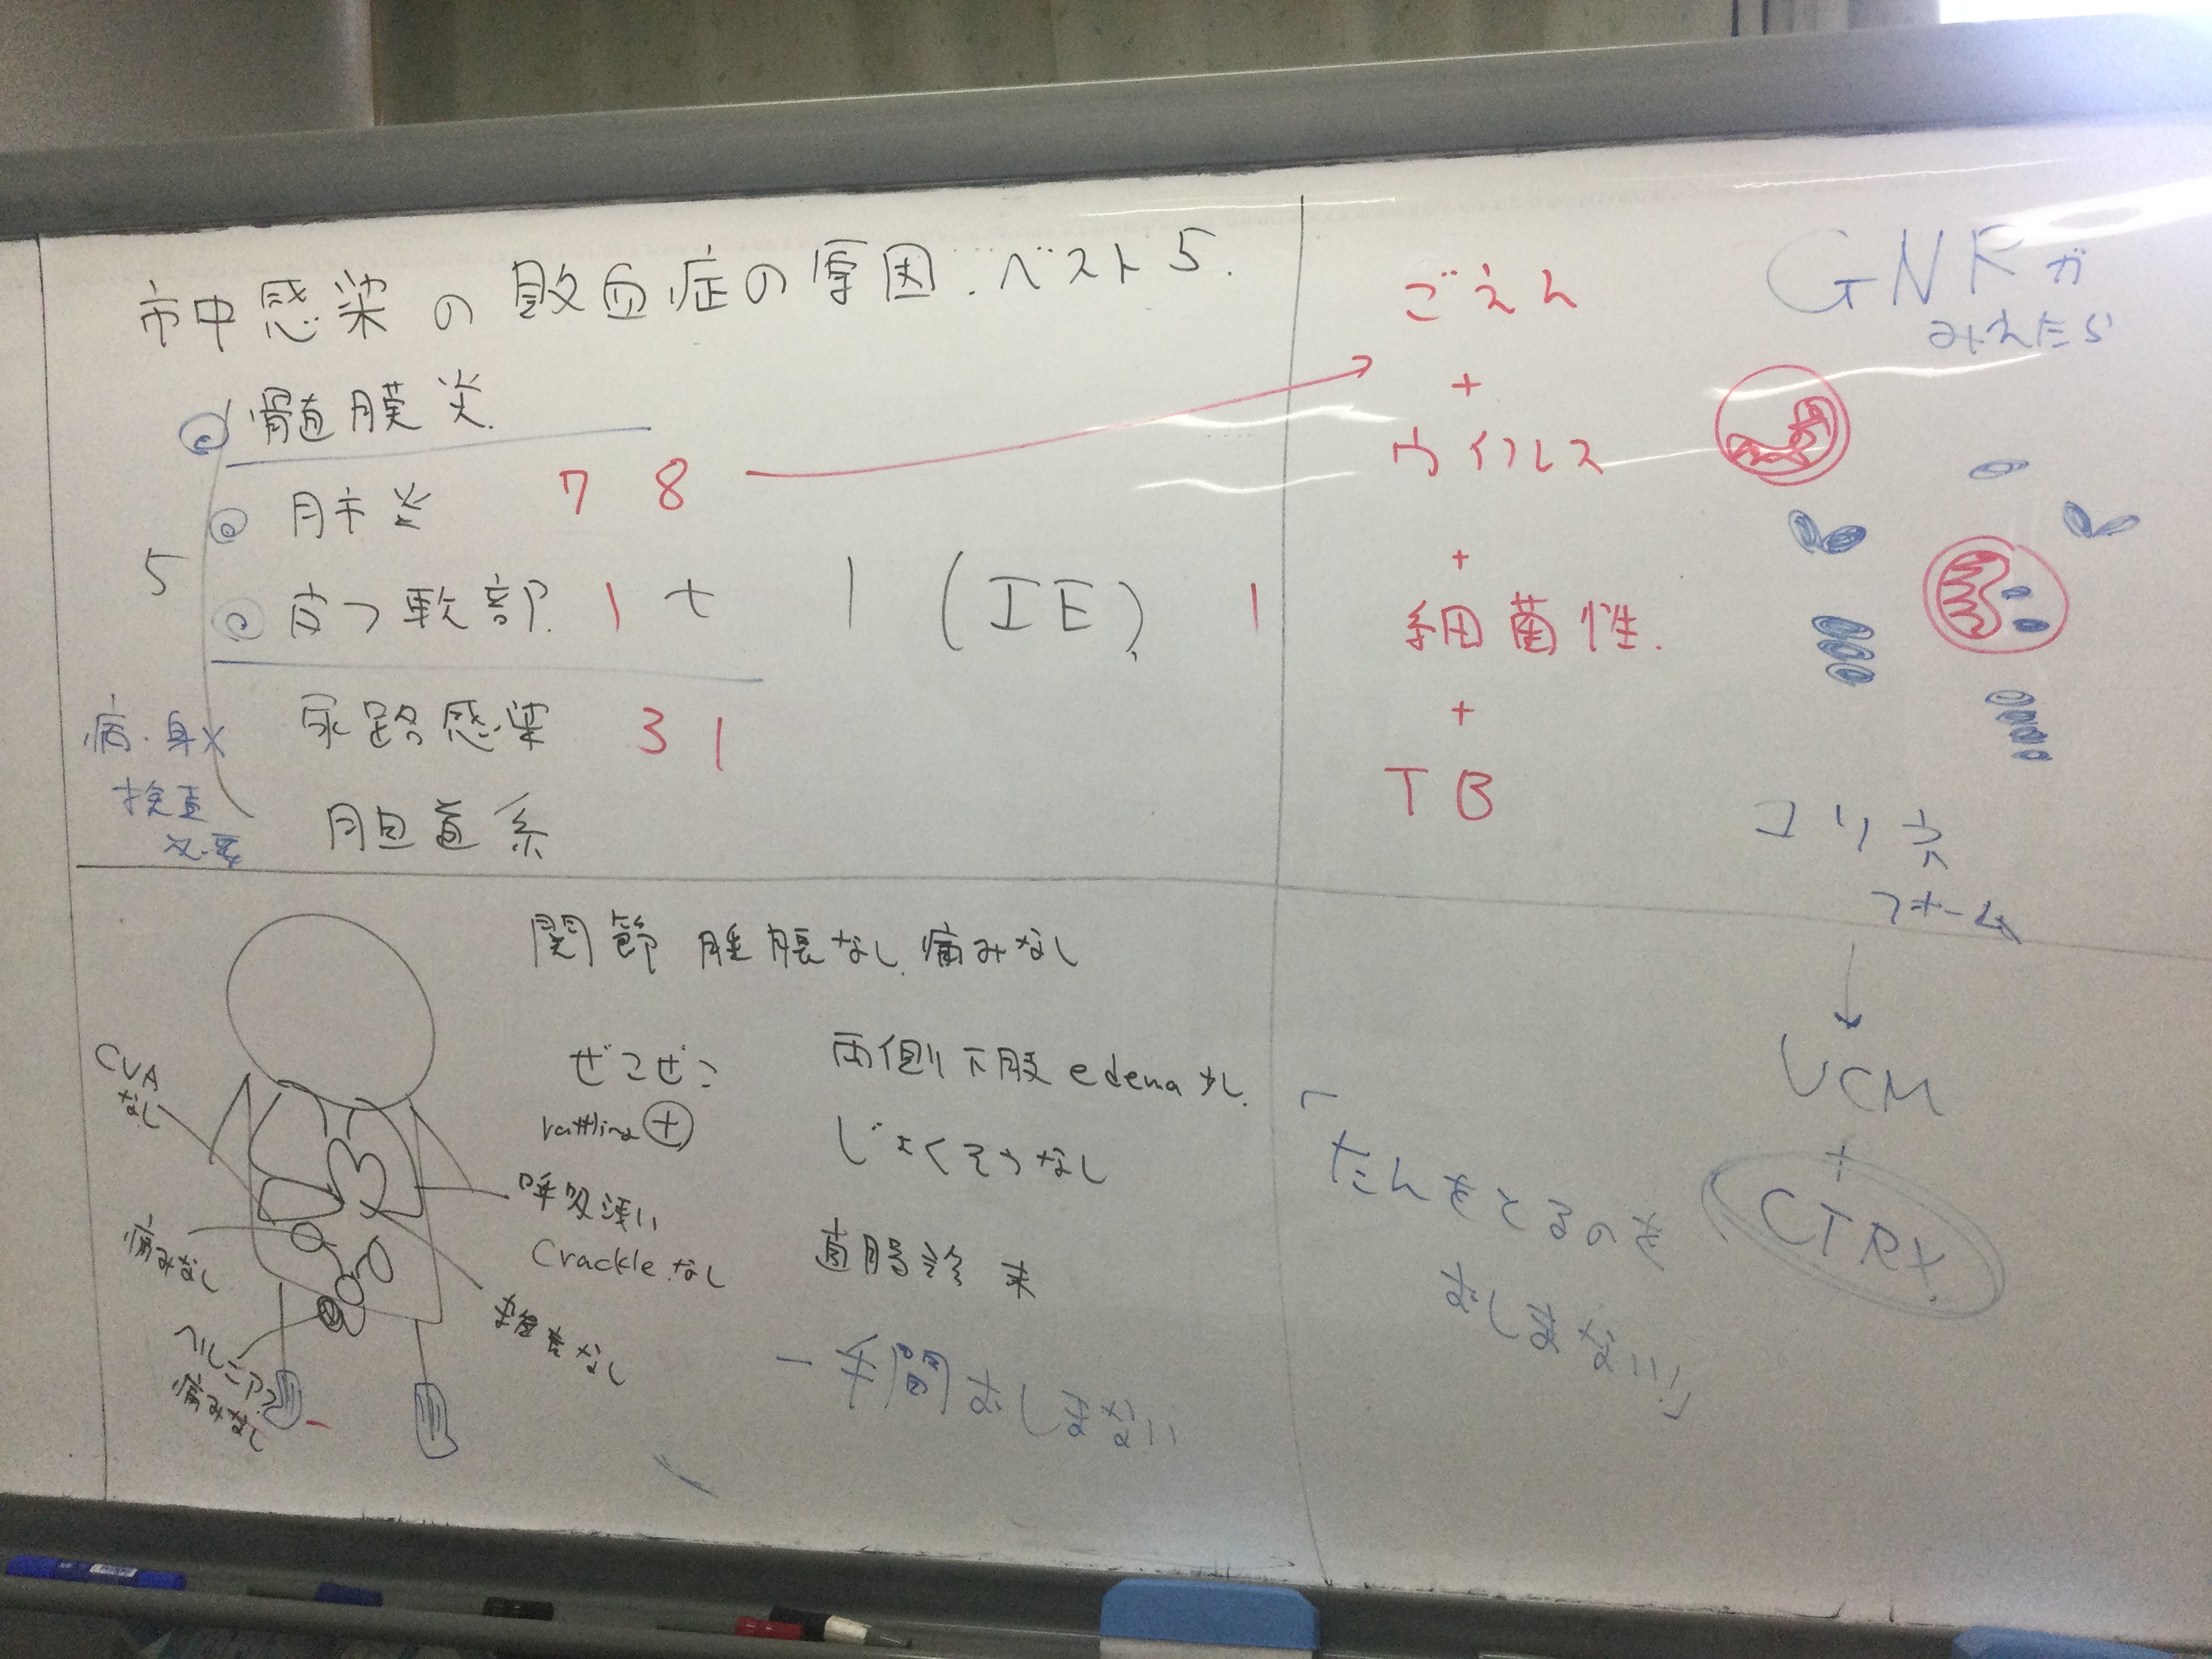 市中感染の敗血症の原因.ベスト5.
髄膜炎.
肺炎 7 8
皮フ軟部. 1 + 1 (IE) 1
尿路感染 3 1
胆道系
5
病・身×
検査
必要
ごえん
+
ウイルス
+
細菌性.
+
TB
GNRが
みえたら
コリネ
フォーム
VCM
+
CTRX.
「たんをとるのを
おしまない!」
関節 腫脹なし.痛みなし
ぜこぜこ
rattling ⊕
呼吸浅い
Crackle なし
両側下肢 edema 少し.
じょくそうなし
直腸診 未
一手間おしまない
CVA
なし
痛みなし
ヘルニア?
痛みなし
なし